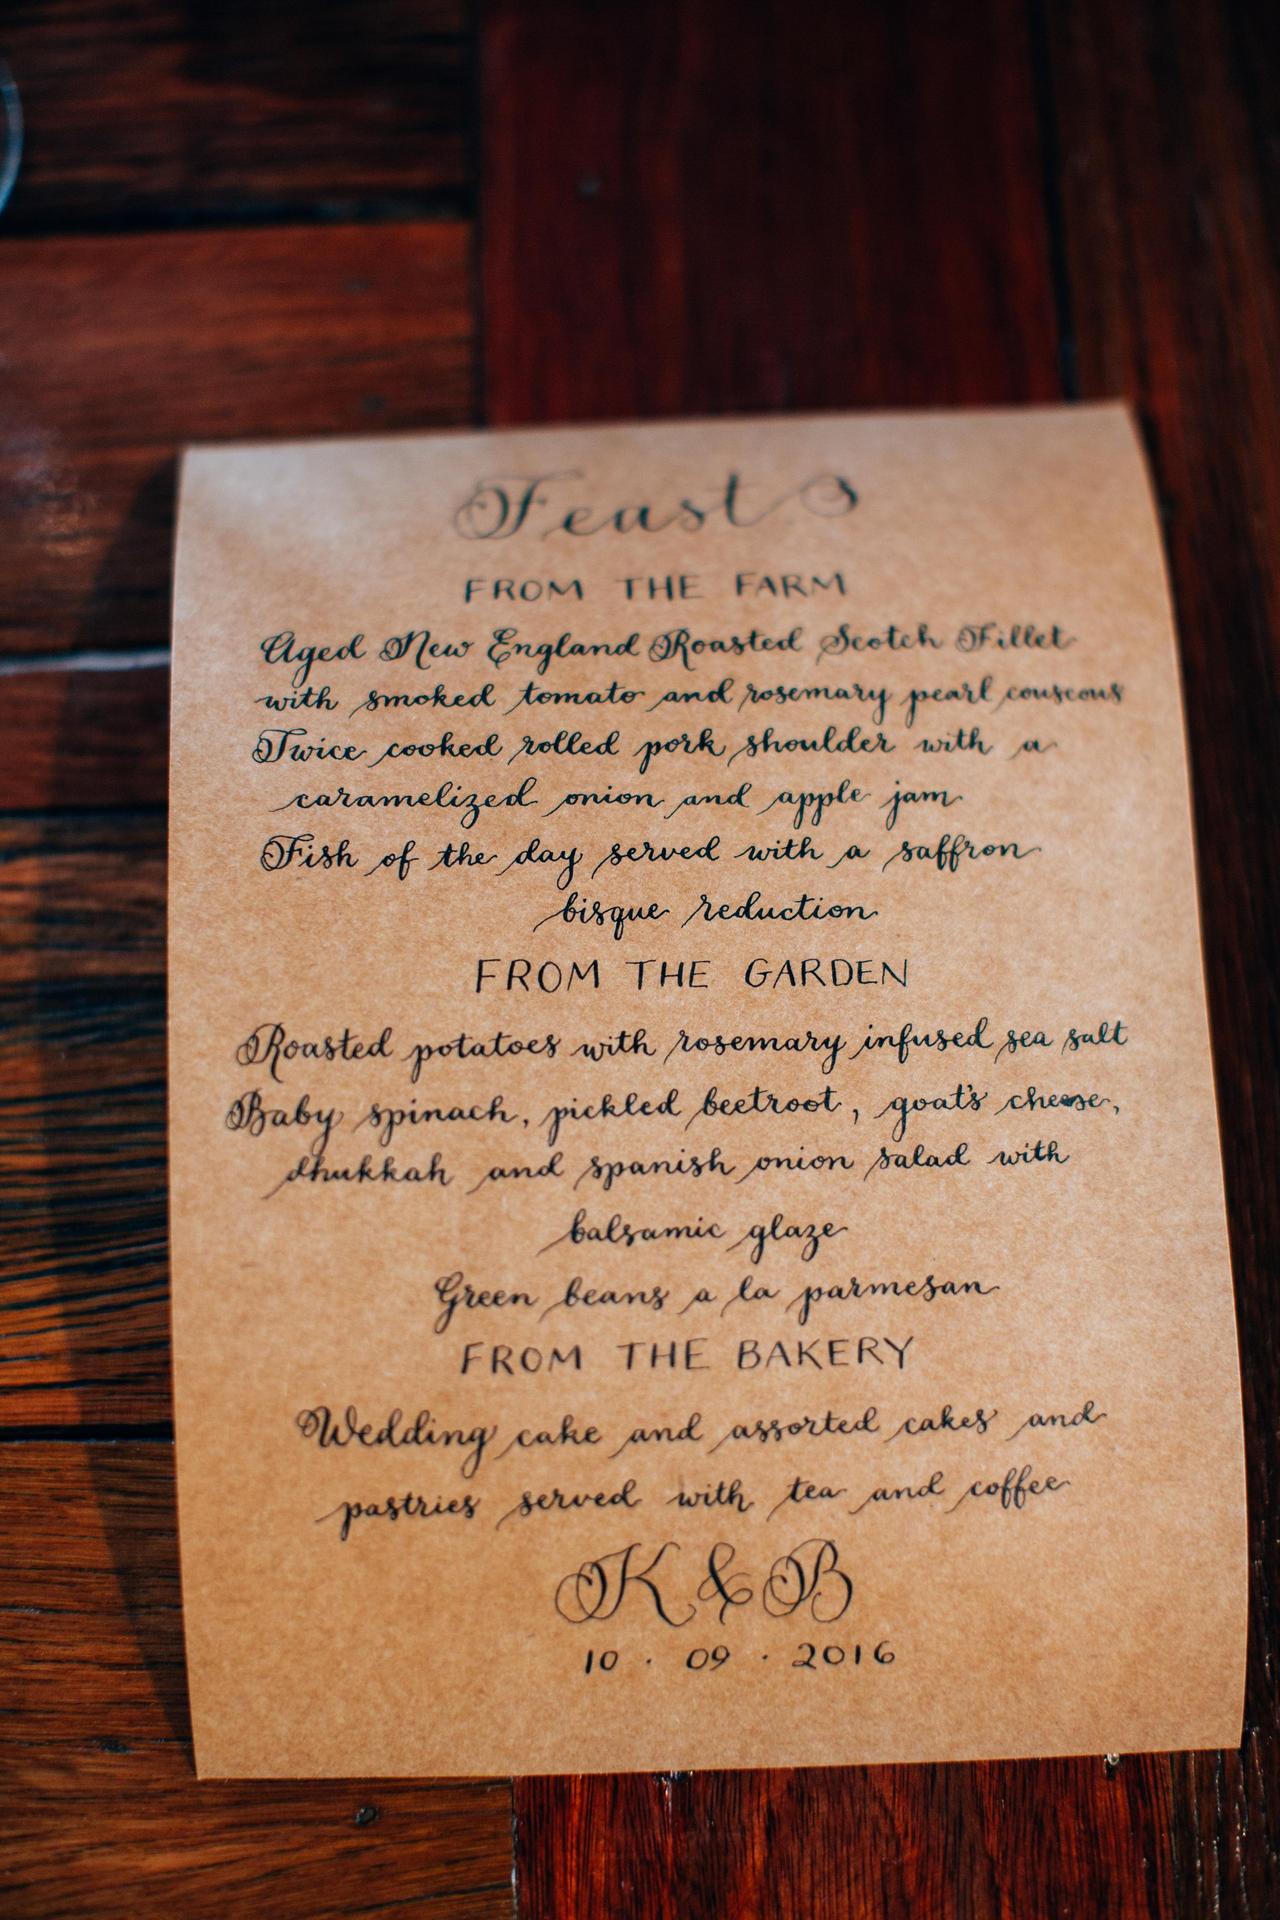 Feast
FROM THE FARM
Aged New England Roasted Scotch Fillet
with smoked tomato and rosemary pearl couscous
Twice cooked rolled pork shoulder with a
caramelized onion and apple jam
Fish of the day served with a saffron
bisque reduction
FROM THE GARDEN
Roasted potatoes with rosemary infused sea salt
Baby spinach, pickled beetroot, goat's cheese,
dhukkah and spanish onion salad with
balsamic glaze
Green beans a la parmesan
FROM THE BAKERY
Wedding cake and assorted cakes and
pastries served with tea and coffee
K & B
10 · 09 · 2016